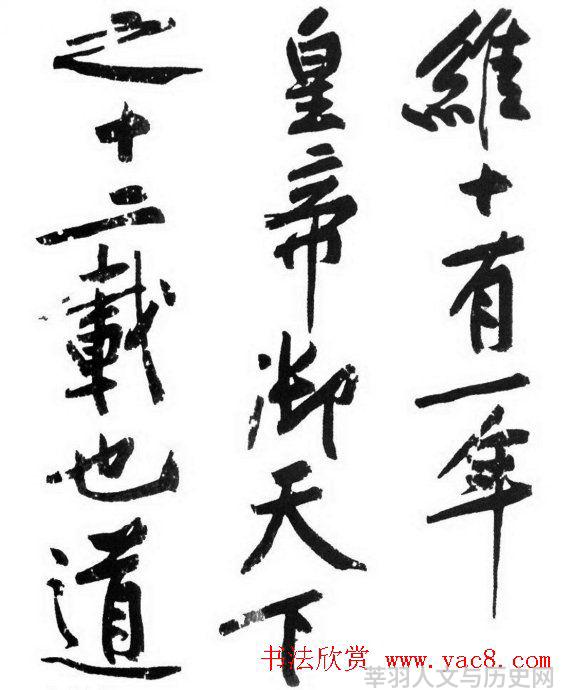 維十有一年
皇帝御天下
之十二載也道
书法欣赏 www.yac8.com
莘羽人文与历史网